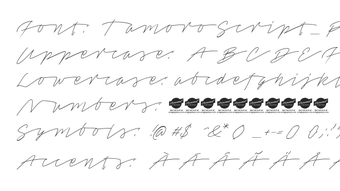 Font: TamoroScript_
Uppercase: A B C D E F
Lowercase: abcdefghijkl
Numbers:
Symbols: !@ #$ ^&* () _+-={} 0;:
Accents: À Á Â Ã Ä Å